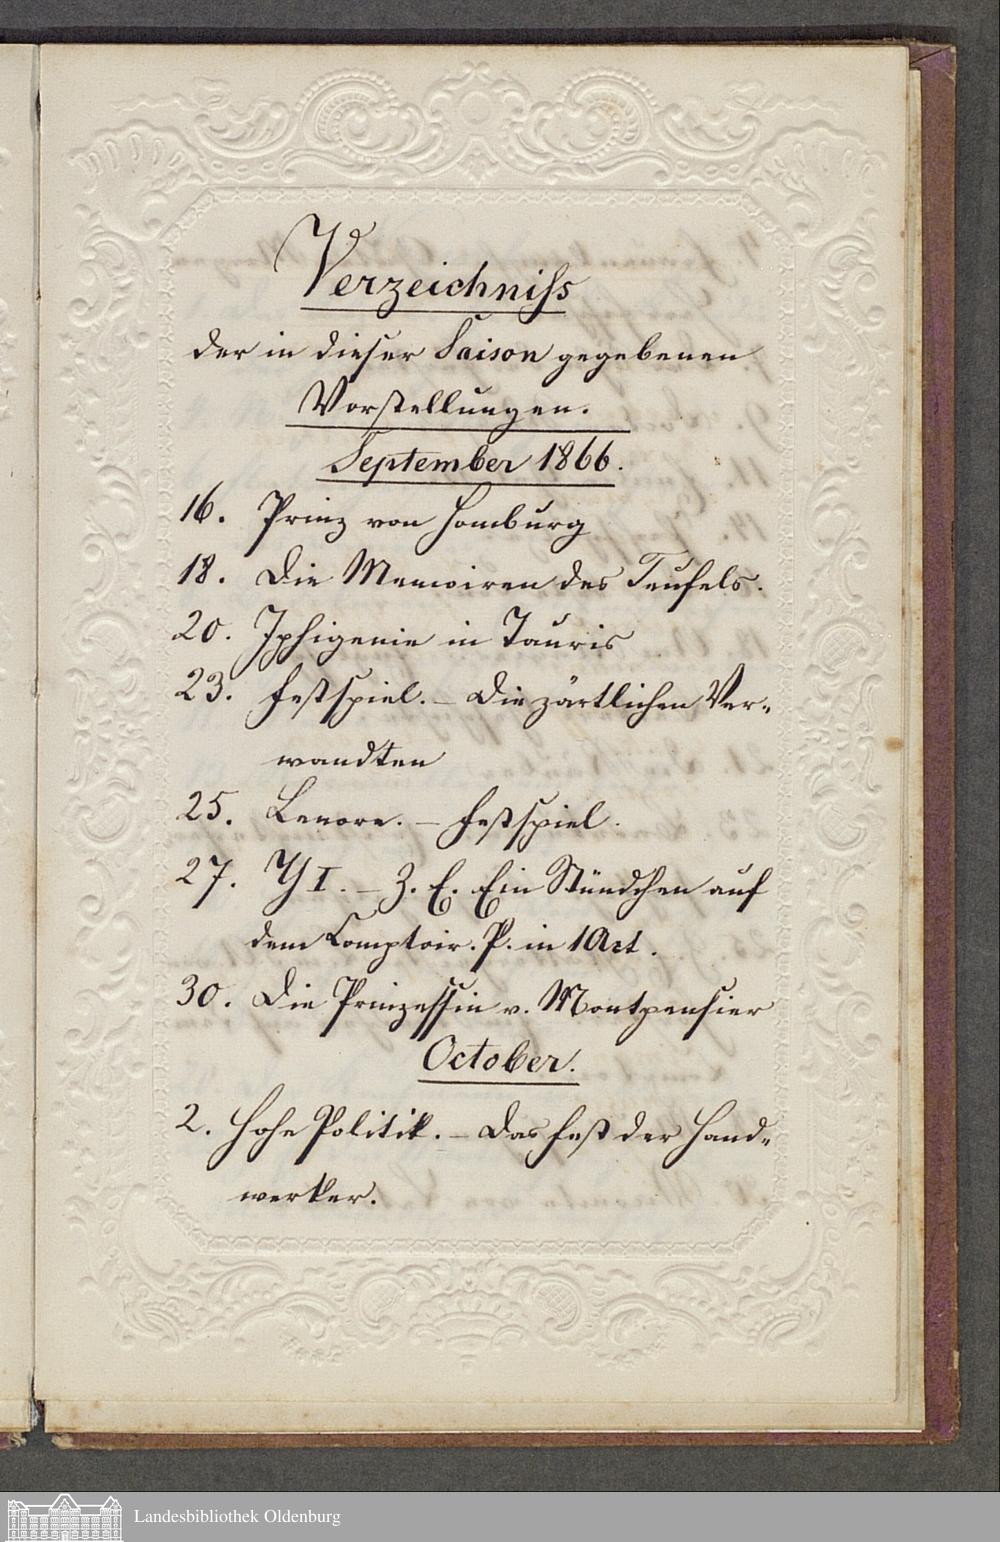 Verzeichniß
der in dieser Saison gegebenen
Vorstellungen.
September 1866.
16. Prinz von Homburg
18. Die Memoiren des Teufels.
20. Iphigenie in Tauris
23. Festspiel. – Die zärtlichen Ver-
wandten
25. Lenore. – Festspiel.
27. Y I. – Z. E. Ein Stündchen auf
dem Comptoir. P. in 1 Act.
30. Die Prinzessin v. Montpensier
October.
2. Hohe Politik. – Das Fest der Hand-
werker.
Landesbibliothek Oldenburg